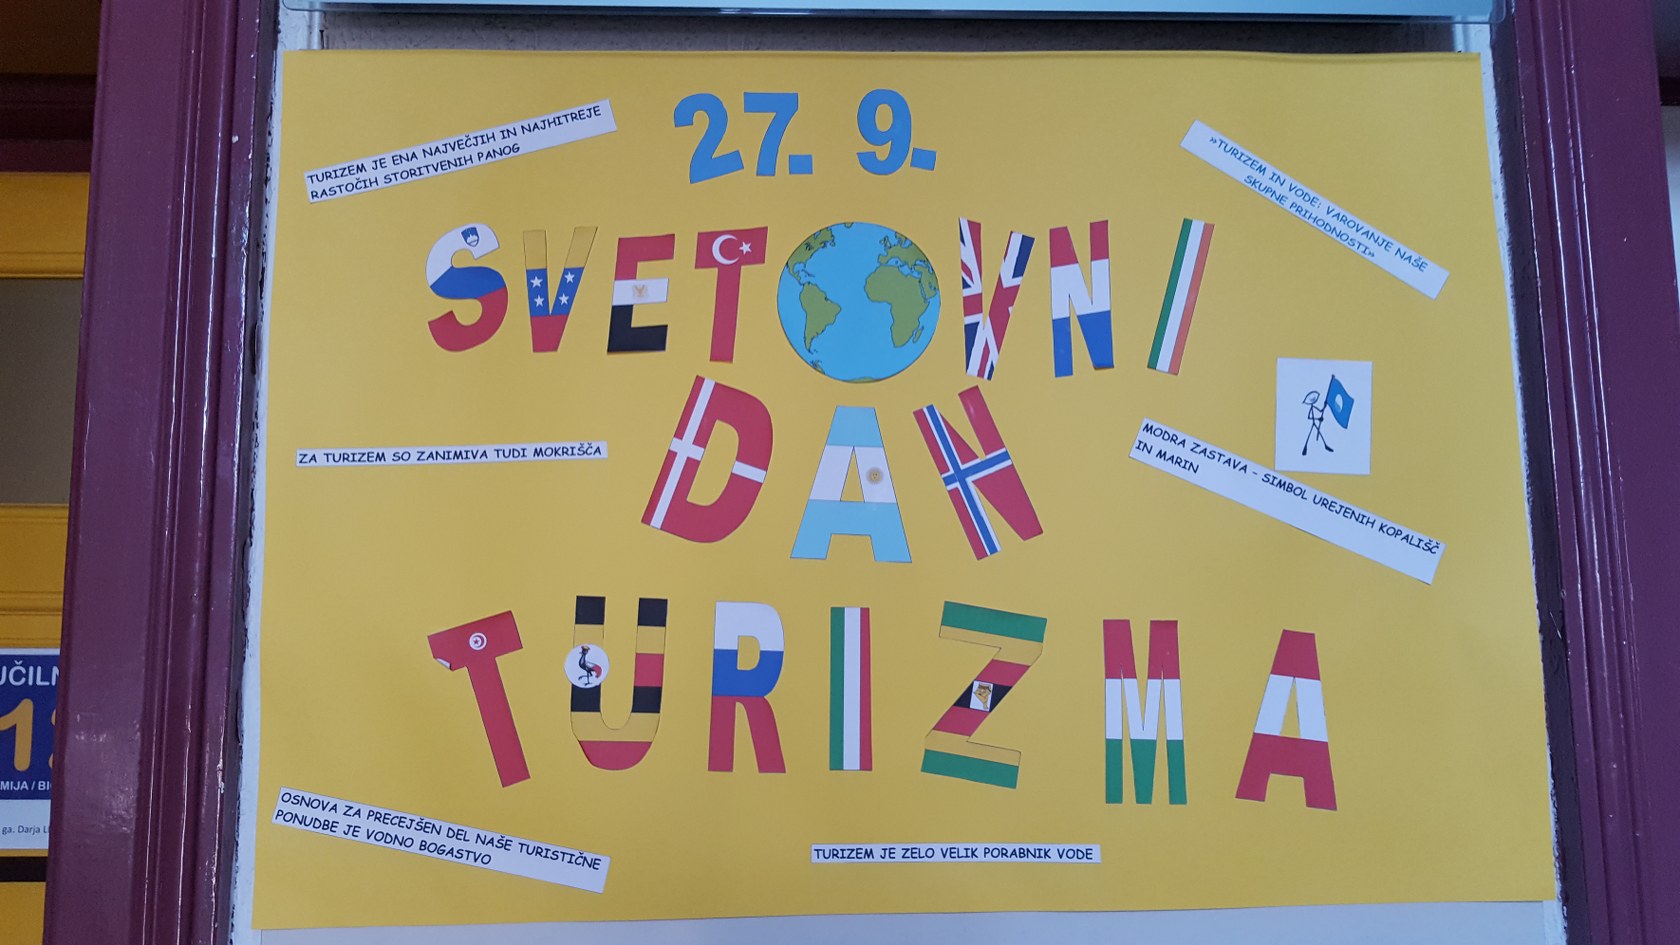 27. 9.
TURIZEM JE ENA NAJVEČJIH IN NAJHITREJE
RASTOČIH STORITVENIH PANOG
»TURIZEM IN VODE: VAROVANJE NAŠE
SKUPNE PRIHODNOSTI»
SVETOVNI
DAN
ZA TURIZEM SO ZANIMIVA TUDI MOKRIŠČA
MODRA ZASTAVA - SIMBOL UREJENIH KOPALIŠČ
IN MARIN
TURIZMA
OSNOVA ZA PRECEJŠEN DEL NAŠE TURISTIČNE
PONUDBE JE VODNO BOGASTVO
TURIZEM JE ZELO VELIK PORABNIK VODE
ga. Darja